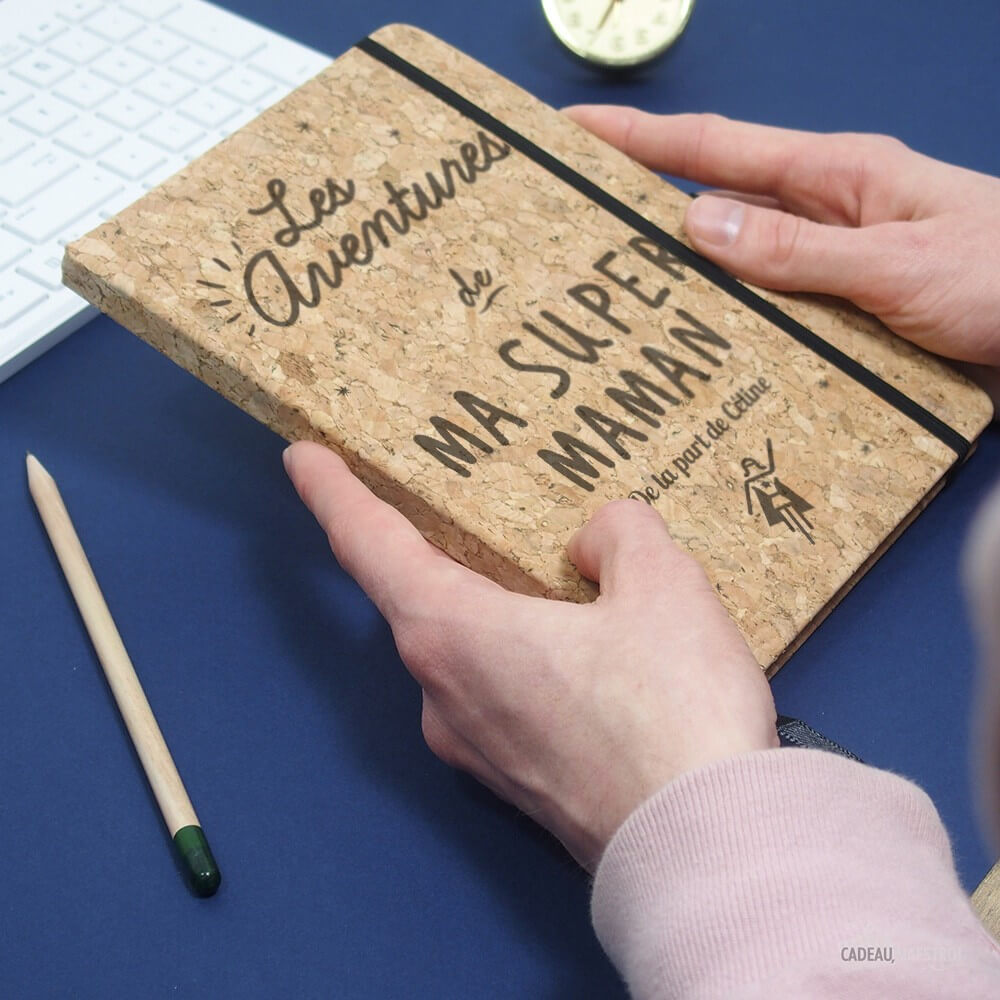 Les
Aventures
de
MA SUPER
MAMAN
De la part de Céline
CADEAU, MAESTRO!